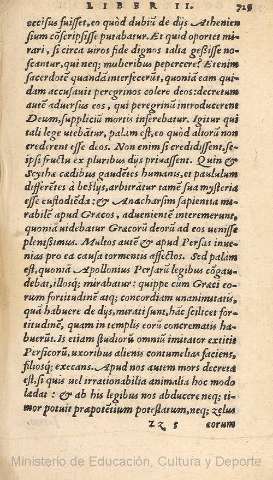 LIBER II. 729
occisus fuisset, eo quòd dubiũ de dijs Athenien
sium cõscripsisse putabatur. Et quid oportet mi-
rari, si circa uiros fide dignos talia geßisse no-
scantur, qui neq; mulieribus pepercere? Etenim
sacerdotẽ quandã interfecerũt, quoniã eam qui-
dam accusauit peregrinos colere deos: decretum
autẽ aduersus eos, qui peregrinũ introducerent
Deum, suppliciũ mortis inserebatur. Igitur qui
tali lege utebãtur, palam est, eo quòd aliorũ non
crederent esse deos. Non enim si credidissent, se-
ipsos fructu ex pluribus dijs priuassent. Quin &
Scythæ cædibus gaudẽtes humanis, et paululum
differẽtes à bestijs, arbitrãtur tamẽ sua mysteria
esse custodiẽda: & Anacharsim sapientia mi-
rabilẽ apud Græcos, aduenientẽ interemerunt,
quoniã uidebatur Græcorũ deorũ ad eos uenisse
plenissimus. Multos autẽ & apud Persas inue-
nias pro ea causa tormentis affectos. Sed palàm
est, quoniã Apollonius Persarũ legibus cõgau-
debat, illosq; mirabatur: quippe cùm Græci eo-
rum fortitudinẽ atq; concordiam unanimitatis,
quã habuere de dijs, mirati sunt, hãc scilicet for-
titudinẽ, quam in templis eorũ concrematis ha-
buerũt. Is etiam studiorũ omniũ imitator extitit
Persicorũ, uxoribus alienis contumelias faciens,
filiosq; execans. Apud nos autem mors decreta
est, si quis uel irrationabilia animalia hoc modo
lædat: & ab his legibus nos abducere neq; ti-
mor potuit præpotẽtium potestatum, neq; zelus
Zz 5 eorum
Ministerio de Educación, Cultura y Deporte